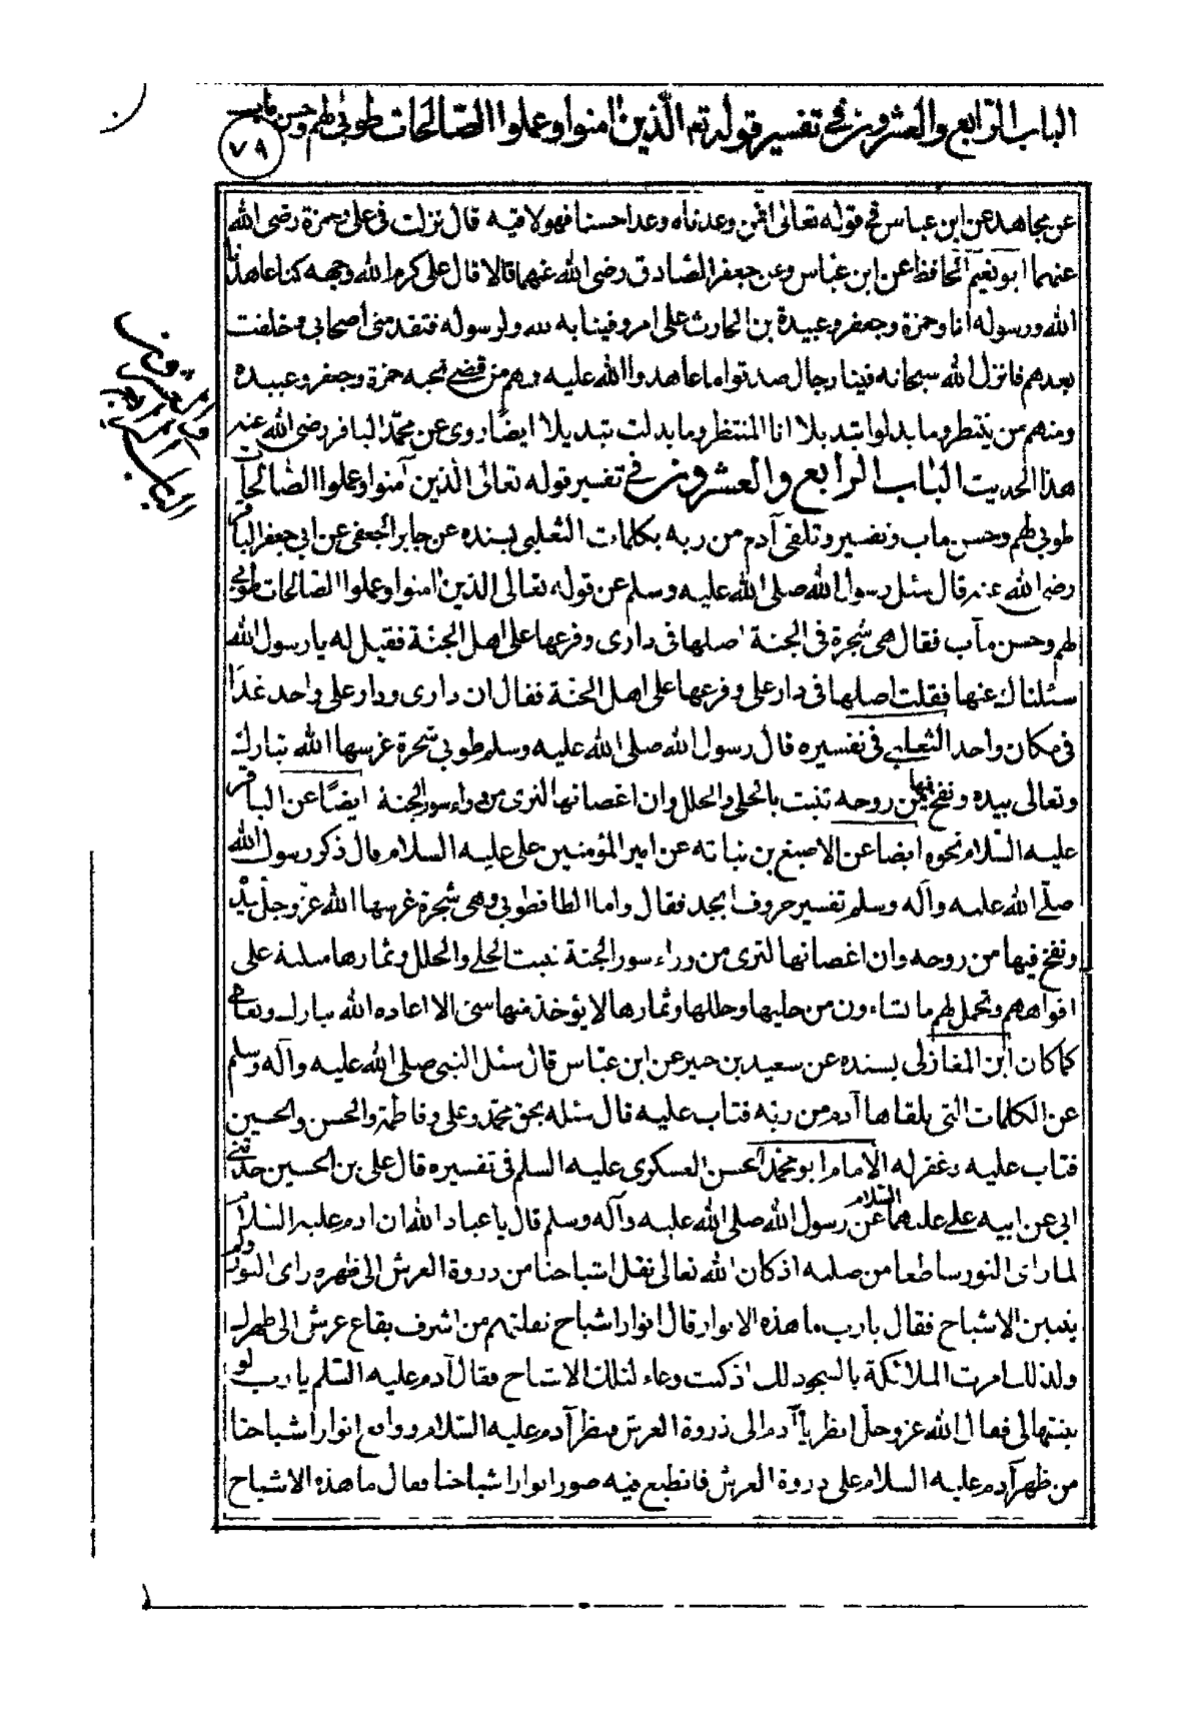 الباب الرابع والعشرون في تفسير قوله تع الذين امنوا وعملوا الصالحات طوبى لهم وحسن مآب
٧٩
عن مجاهد عن ابن عباس في قوله تعالى افمن وعدناه وعدا حسنا فهو لاقيه قال نزلت في علي وحمزة رضى الله
عنهما ابو نعيم الحافظ عن ابن عباس وعن جعفر الصادق رضى الله عنهما قالا قال علي كرم الله وجهه كنا عاهدنا
الله ورسوله انا وحمزة وجعفر وعبيدة بن الحارث على امر وفينا به لله ولرسوله فتقدمنى أصحابي وخلفت
بعدهم فانزل الله سبحانه فينا رجال صدقوا ما عاهدوا الله عليه فمنهم من قضى نحبه حمزة وجعفر وعبيدة
ومنهم من ينتظر وما بدلوا تبديلا انا المنتظر وما بدلت تبديلا ايضا روى عن محمد الباقر رضى الله عنه
هذا الحديث الباب الرابع والعشرون في تفسير قوله تعالى الذين آمنوا وعملوا الصالحات
طوبى لهم وحسن ماب وتفسير وتلقى آدم من ربه بكلمات الثعلبي بسنده عن جابر الجعفي عن ابي جعفر الباقر
رضى الله عنه قال سئل رسول الله صلى الله عليه وسلم عن قوله تعالى الذين امنوا وعملوا الصالحات طوبى
لهم وحسن مآب فقال هى شجرة في الجنة اصلها في دارى وفرعها على اهل الجنة فقيل له يا رسول الله
سئلناك عنها فقلت اصلها في دار علي وفرعها على اهل الجنة فقال ان دارى ودار علي واحد غدا
في مكان واحد الثعلبي في تفسيره قال رسول الله صلى الله عليه وسلم طوبى شجرة غرسها الله تبارك
وتعالى بيده ونفخ فيها من روحه تنبت بالحلى والحلل وان اغصانها لترى من وراء سور الجنة ايضا عن الباقر
عليه السلام نحوه ايضا عن الاصبغ بن نباته عن امير المؤمنين علي عليه السلام قال ذكر رسول الله
صلى الله عليه وآله وسلم تفسير حروف ابجد فقال واما الطا فطوبى وهى شجرة غرسها الله عز وجل بيده
ونفخ فيها من روحه وان اغصانها لترى من وراء سور الجنة تنبت الحلي والحلل وثمارها متدلية على
افواههم وتحمل لهم ما تشاءون من حليها وحللها وثمارها لا يؤخذ منها شئ الا اعاده الله تبارك وتعالى
كما كان ابن المغازلى بسنده عن سعيد بن جبير عن ابن عباس قال سئل النبي صلى الله عليه وآله وسلم
عن الكلمات التى تلقاها آدم من ربه فتاب عليه قال سئله بحق محمد وعلي وفاطمة والحسن والحسين
فتاب عليه وغفر له الامام ابو محمد الحسن العسكرى عليه السلم في تفسيره قال علي بن الحسين حدثني
ابي عن ابيه علي عليهما السلام عن رسول الله صلى الله عليه وآله وسلم قال يا عباد الله ان ادم عليه السلام
لما راى النور ساطعا من صلبه اذ كان الله تعالى نقل اشباحنا من ذروة العرش الى ظهره راى النور ولم
يتبين الاشباح فقال يا رب ما هذه الانوار قال انوار اشباح نقلتهم من اشرف بقاع عرشي الى ظهرك
ولذلك امرت الملائكة بالسجود لك اذ كنت وعاء لتلك الاشباح فقال آدم عليه السلم يا رب لو
بينتها لي فقال الله عز وجل انظر يا آدم الى ذروة العرش فنظر آدم عليه السلام ووقع انوار اشباحنا
من ظهر آدم عليه السلام على ذروة العرش فانطبع فيه صور انوار اشباحنا فقال ما هذه الاشباح
الباب الرابع والعشرون